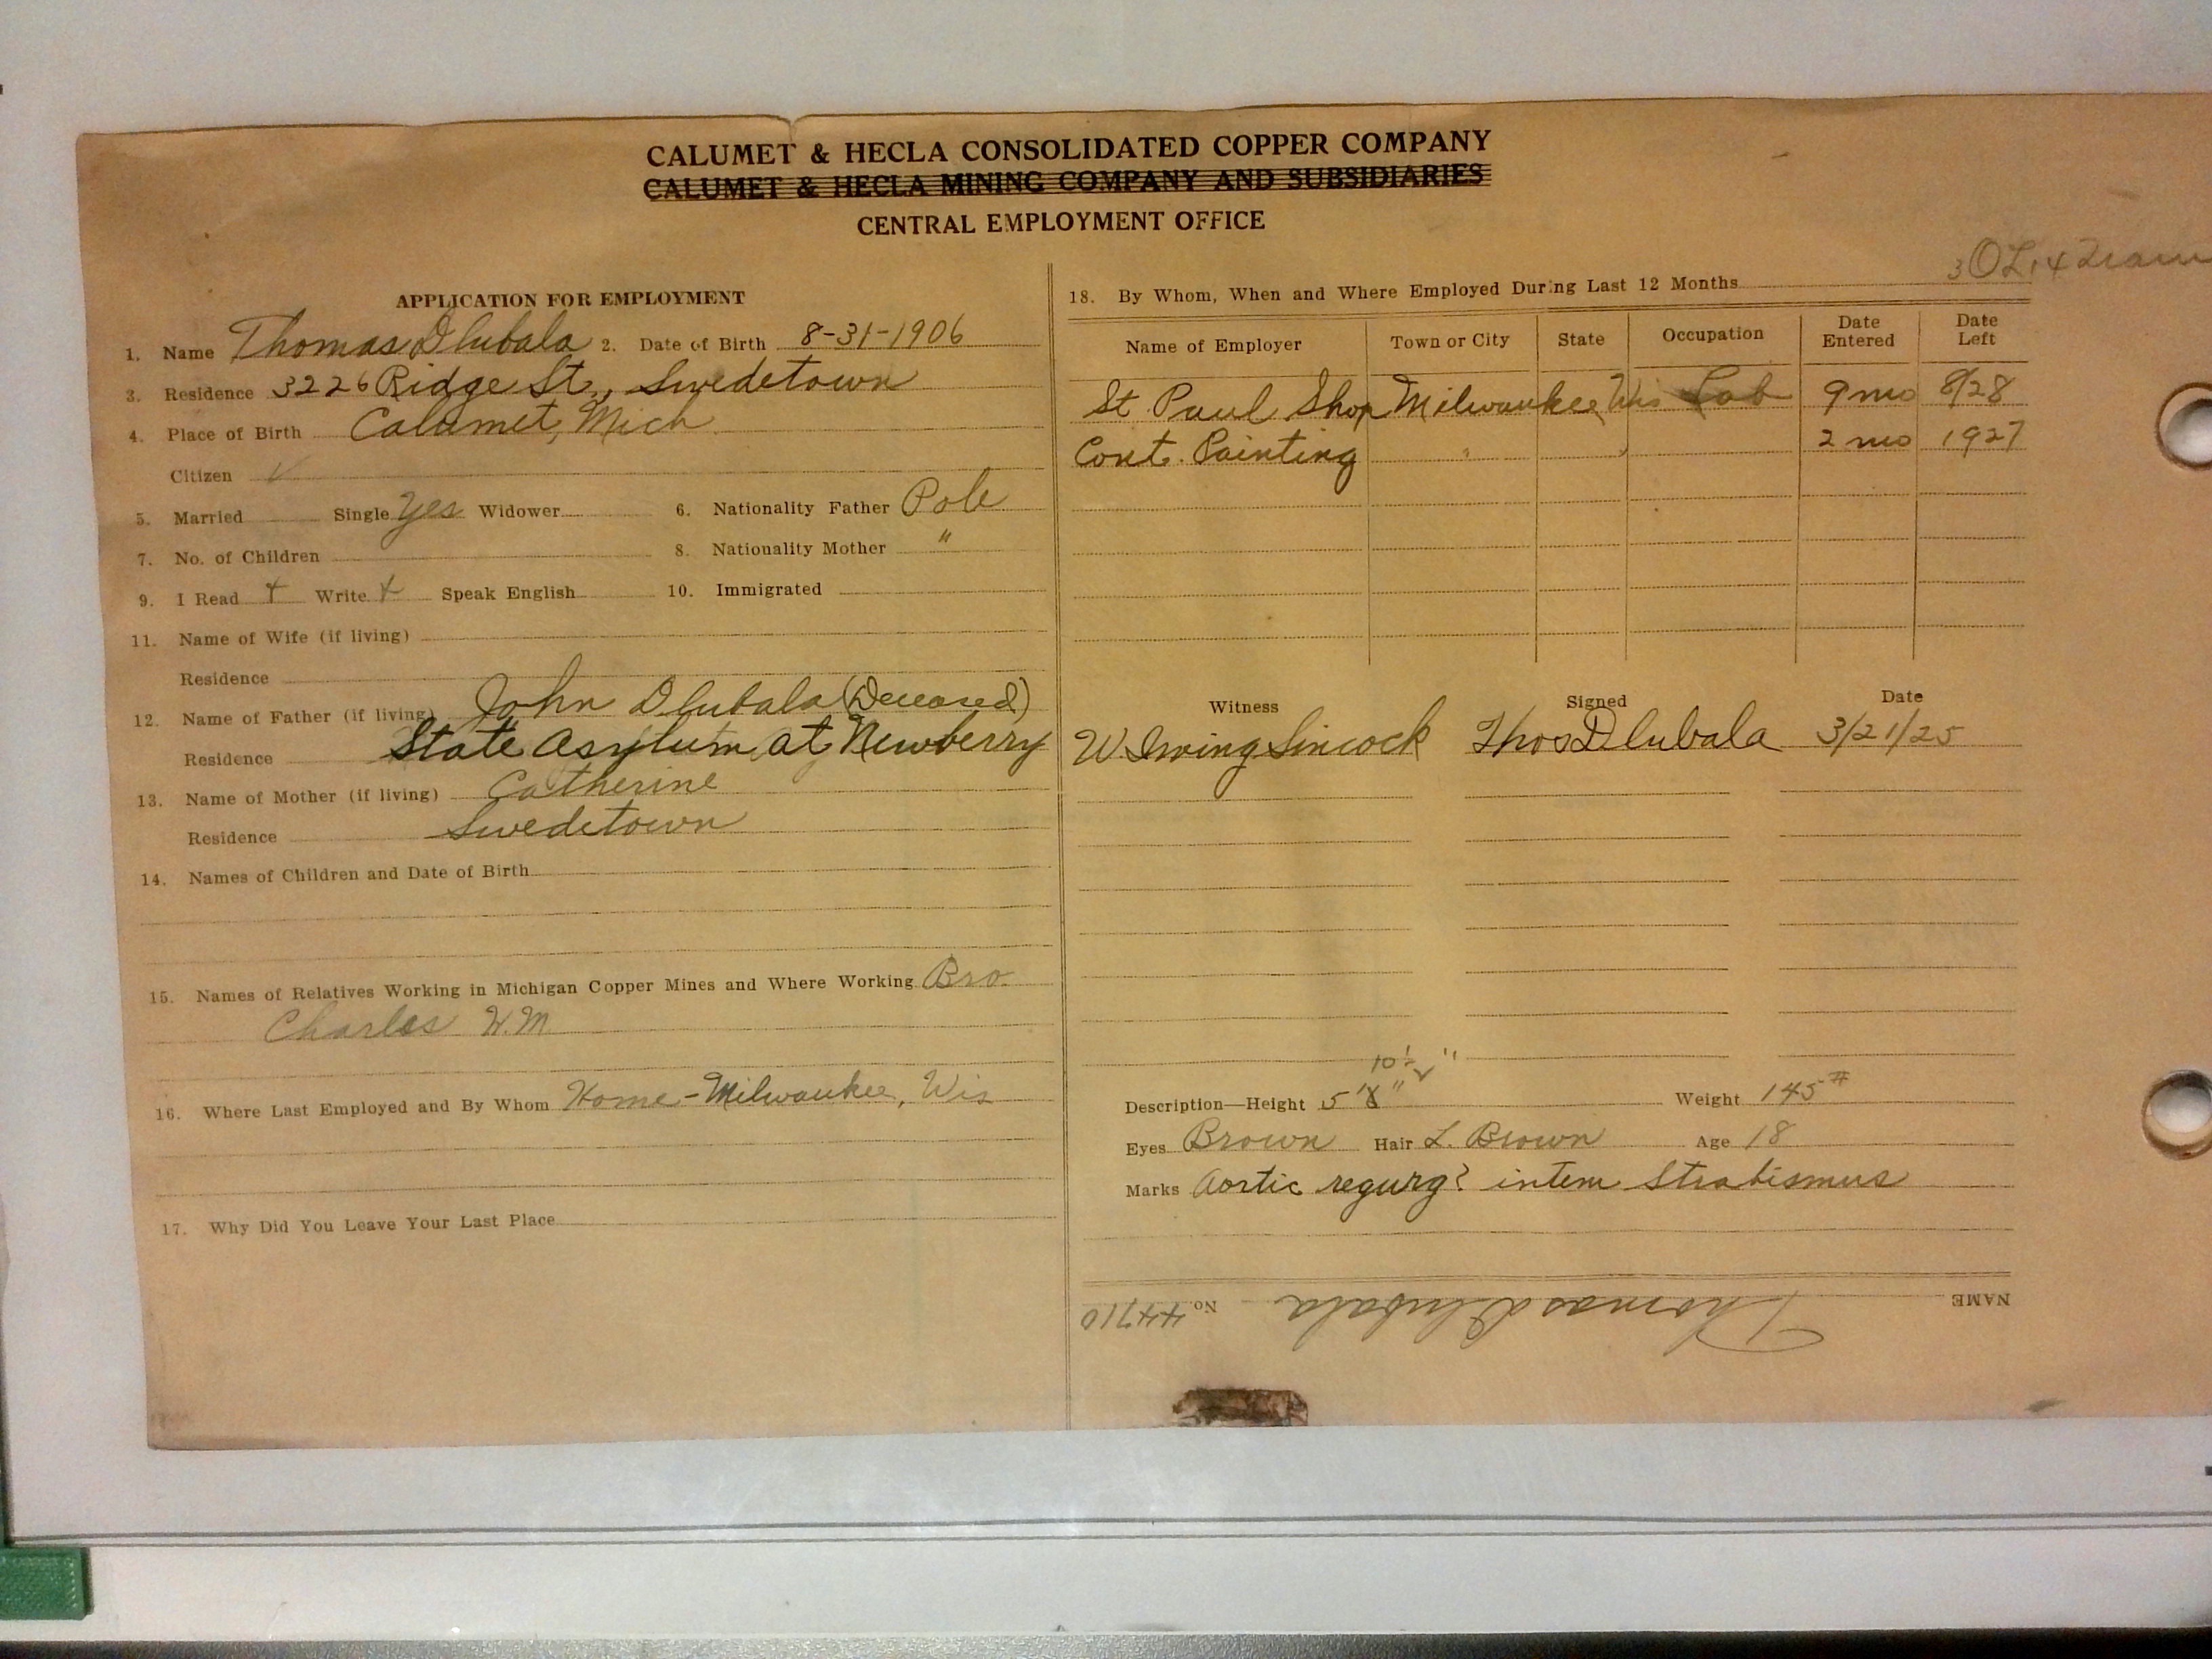 CALUMET & HECLA CONSOLIDATED COPPER COMPANY
CALUMET & HECLA MINING COMPANY AND SUBSIDIARIES
CENTRAL EMPLOYMENT OFFICE
APPLICATION FOR EMPLOYMENT
1. Name Thomas Dlubala 2. Date of Birth 8-31-1906
3. Residence 3226 Ridge St., Swedetown
4. Place of Birth Calumet, Mich
Citizen ✓
5. Married Single Yes Widower 6. Nationality Father Pole
7. No. of Children 8. Nationality Mother "
9. I Read + Write + Speak English 10. Immigrated
11. Name of Wife (if living)
Residence
12. Name of Father (if living) John Dlubala (Deceased)
Residence State Asylum at Newberry
13. Name of Mother (if living) Catherine
Residence Swedetown
14. Names of Children and Date of Birth
15. Names of Relatives Working in Michigan Copper Mines and Where Working Bro.
Charles
16. Where Last Employed and By Whom Home - Milwaukee, Wis
17. Why Did You Leave Your Last Place
18. By Whom, When and Where Employed During Last 12 Months
Name of Employer Town or City State Occupation Date Entered Date Left
St. Paul Shop Milwaukee Wis Lab 9 mo 8/28
Cont. Painting " " 2 mo 1927
Witness Signed Date
W. Irving Sincock Thos Dlubala 3/21/25
10½"
Description—Height 5'8" Weight 145#
Eyes Brown Hair L. Brown Age 18
Marks Aortic regurg? intern Strabismus
NAME Thomas Dlubala No. 44710